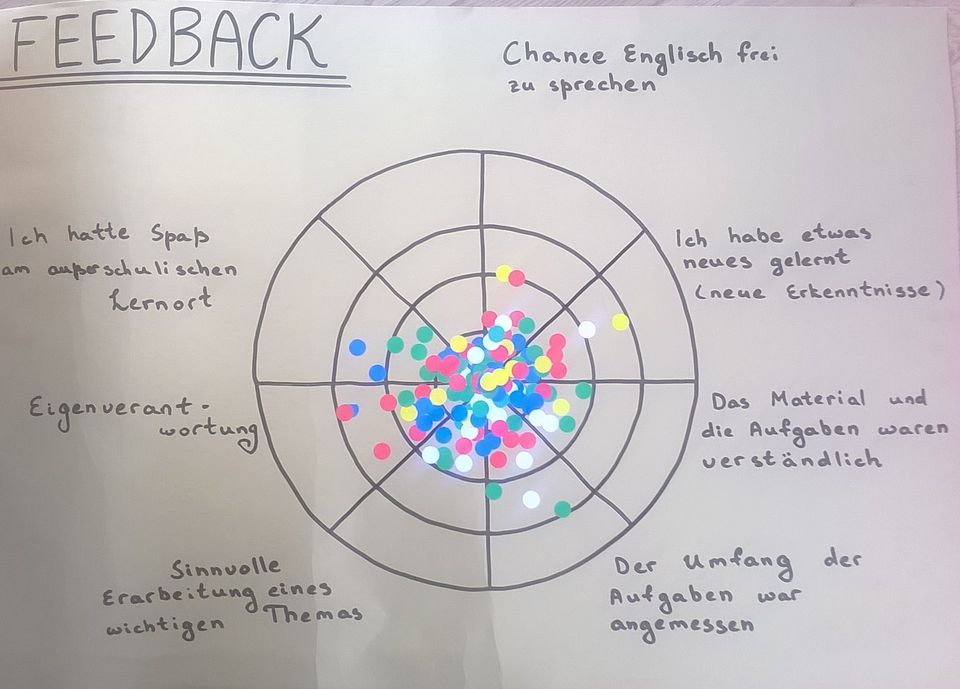 FEEDBACK
Chance Englisch frei
zu sprechen
Ich hatte Spaß
am außerschulischen
Lernort
Ich habe etwas
neues gelernt
(neue Erkenntnisse)
Eigenverant-
wortung
Das Material und
die Aufgaben waren
verständlich
Sinnvolle
Erarbeitung eines
wichtigen Themas
Der Umfang der
Aufgaben war
angemessen